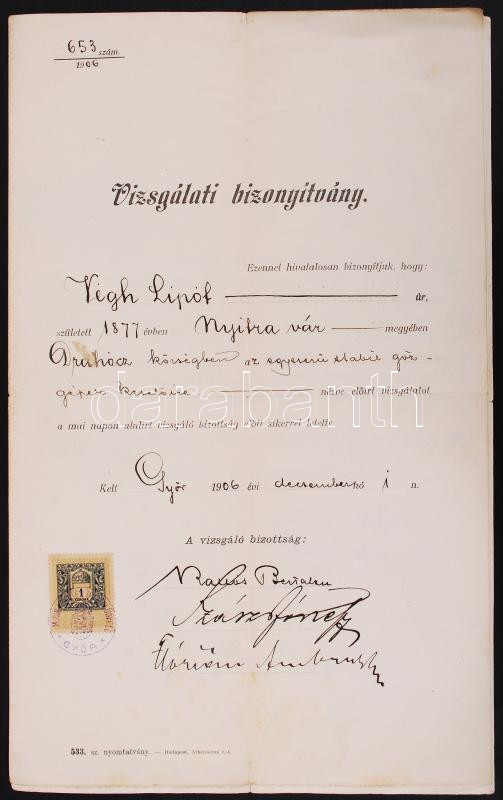 653 szám.
1906
Vizsgálati bizonyítvány.
Ezennel hivatalosan bizonyítjuk, hogy:
Végh Lipót úr,
született 1877 évben Nyitra vár megyében
községben az egyszerü stabil göz-
nézve előirt vizsgálatot
a mai napon alulirt vizsgáló bizottság előtt sikerrel letette.
Kelt Győr 1906 évi december hó 1 n.
A vizsgáló bizottság:
Bertalan
Szász József
Flórián
1
KORONA
GYŐR
darabanth
533. sz. nyomtatvány. — Budapest, Athenaeum r.-t.